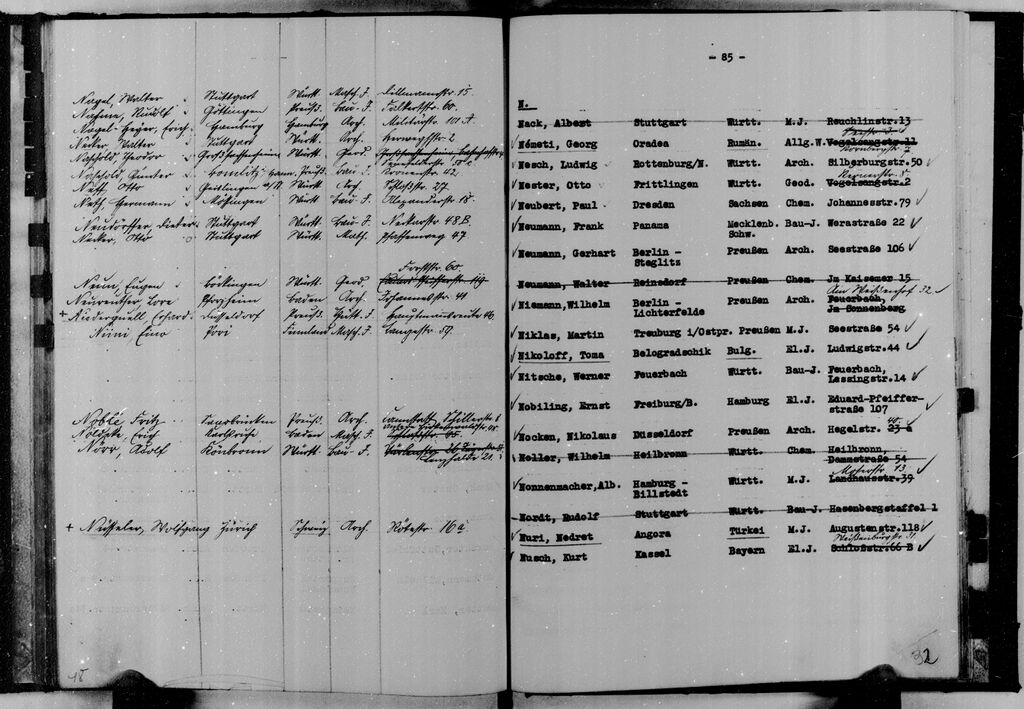 Nagel, Walter Stuttgart Württ. Masch. J. Lillmannstr. 15.
Göttingen Preuß. Bau-J. Falkertstr. 60.
Hamburg Hamburg Arch. Militärstr. 101 A.
Walter Stuttgart Württ. Arch. Herweghstr. 2
Theodor Großsachsenheim Württ. Geod.
Günter Preuß. Arch. Kornerstr. 42.
Nath, Otto Geislingen a/St. Württ. Arch. Schloßstr. 27.
Nath, Hermann Mössingen Württ. Bau-J. Alexanderstr. 18.
Neudörffer, Dieter Stuttgart Württ. Bau-J. Neckarstr. 48 B.
Necker, Otto Stuttgart Württ. Masch. Pfaffenweg 47
Forststr. 60.
Eugen Böckingen Württ. Geod.
Neureuther, Lore Pforzheim Baden Arch. Johannesstr. 41
+ Niederquell, Erhard Düsseldorf Preuß.
Niini, Eino Pori Finnland Masch. J. Langestr. 57.
Fritz Saarbrücken Preuß. Arch. Cannstatt, Schillerstr.
Nöldeke, Erich Karlsruhe Baden Masch. J.
Nörr, Adolf Schönbronn Württ. Bau-J.
+ Nüsseler, Wolfgang Zürich Schweiz Arch. Rötestr. 16 a
18
- 85 -
N.
Nack, Albert Stuttgart Württ. M.J. Reuchlinstr.13
Németi, Georg Oradea Rumän. Allg.W. Vogelsangstr.11
Nesch, Ludwig Rottenburg/N. Württ. Arch. Silberburgstr.50
Nester, Otto Frittlingen Württ. Geod. Vogelsangstr.2
Neubert, Paul Dresden Sachsen Chem. Johannesstr.79
Neumann, Frank Panama Mecklenb. Bau-J. Werastraße 22
Schw.
Neumann, Gerhart Berlin - Preußen Arch. Seestraße 106
Steglitz
Neumann, Walter Reinsdorf Preußen Chem. Jm Kaisemer 15
Am Weißenhof 32
Niemann,Wilhelm Berlin - Preußen Arch. Feuerbach,
Lichterfelde Jm Sonnenberg
Niklas, Martin Treuburg i/Ostpr. Preußen M.J. Seestraße 54
Nikoloff, Toma Belogradschik Bulg. El.J. Ludwigstr.44
Nitsche, Werner Feuerbach Württ. Bau-J. Feuerbach,
Lessingstr.14
Nobiling, Ernst Freiburg/B. Hamburg El.J. Eduard-Pfeiffer-
straße 107
40
Nocken, Nikolaus Düsseldorf Preußen Arch. Hegelstr. 23 a
Noller, Wilhelm Heilbronn Württ. Chem. Heilbronn,
Dammstraße 54
Moserstr. 13
Nonnenmacher,Alb. Hamburg - Württ. M.J. Landhausstr.39
Billstedt
Nordt, Rudolf Stuttgart Württ. Bau-J. Hasenbergstaffel 1
Nuri, Nedret Angora Türkei M.J. Augustenstr.118
Weißenburgstr. 31
Nusch, Kurt Kassel Bayern El.J. Schloßstr.66 B
32